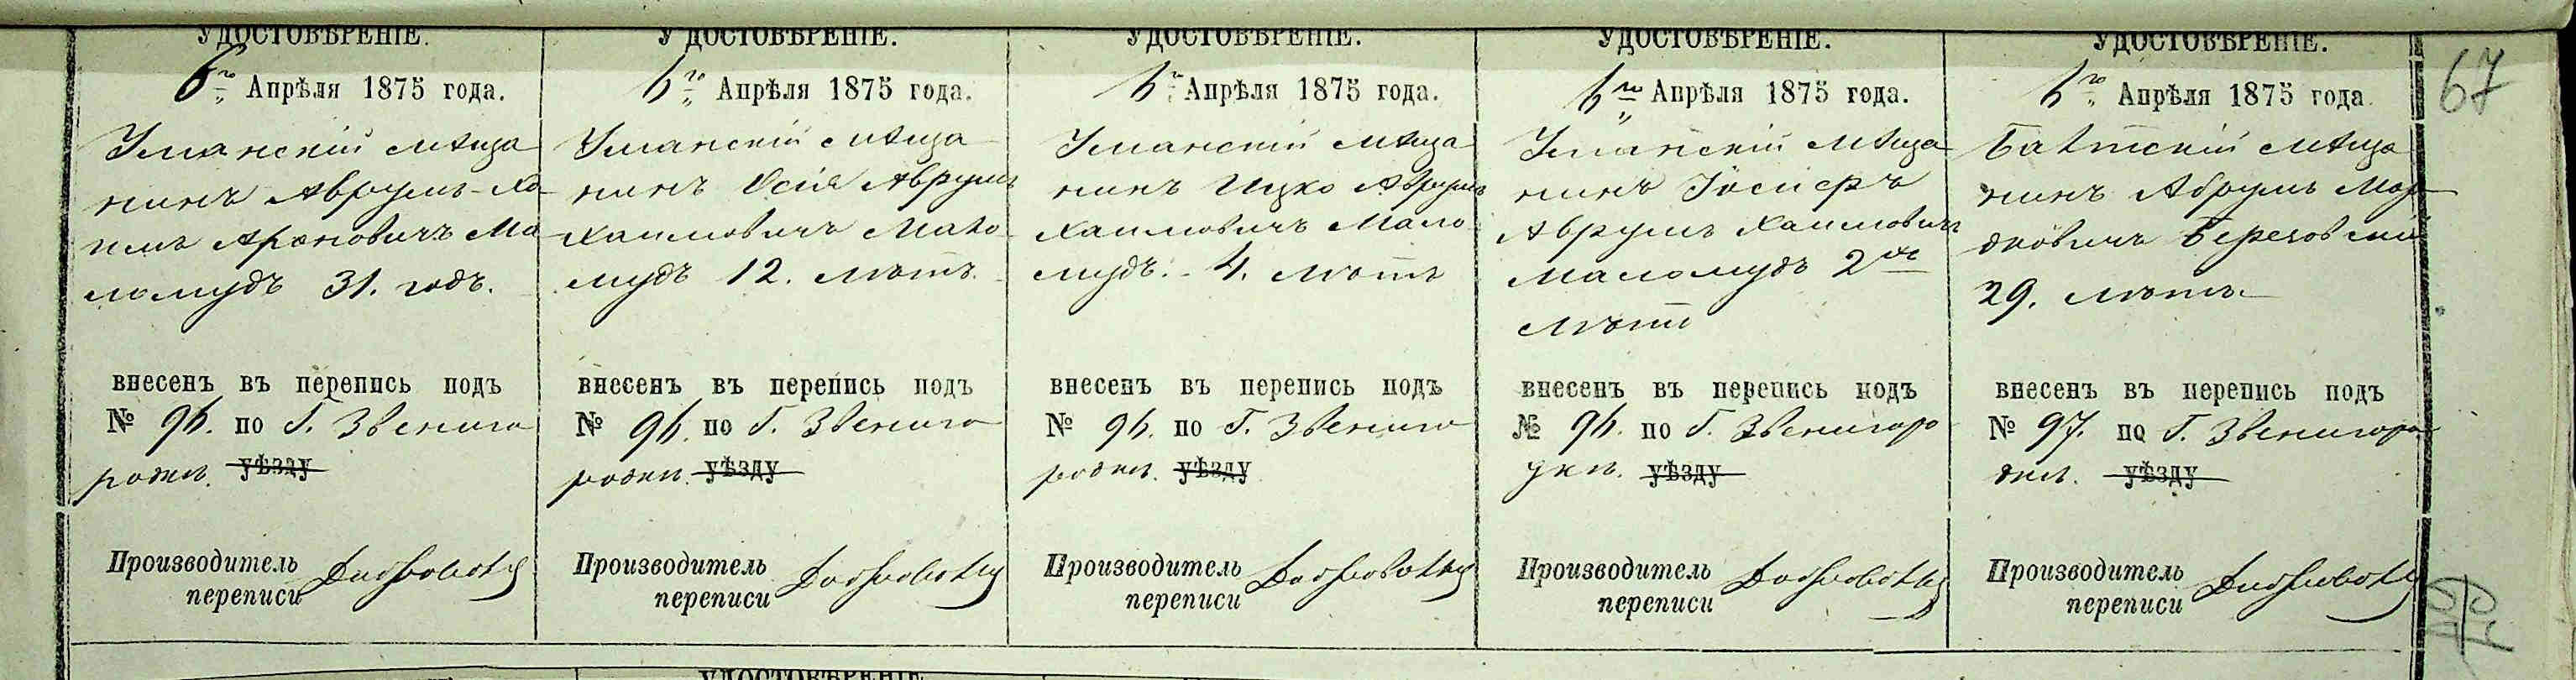 УДОСТОВѢРЕНІЕ.
6го Апрѣля 1875 года.
Уманскій мѣща
нинъ Аврумъ-Ха
имъ Ароновичъ Ма
ломудъ 31. годъ.
внесенъ въ перепись подъ
№ 96. по Г. Звениго
родкѣ. уѣзду
Производитель
переписи
УДОСТОВѢРЕНІЕ.
6го Апрѣля 1875 года.
Уманскій мѣща
нинъ Аврумъ
Хаимовичъ Мало
мудъ 12. лѣтъ.
внесенъ въ перепись подъ
№ 96. по Г. Звениго
родкѣ. уѣзду
Производитель
переписи
УДОСТОВѢРЕНІЕ.
6го Апрѣля 1875 года.
Уманскій мѣща
нинъ Ицко Аврумъ
Хаимовичъ Мало
мудъ. 4. лѣтъ
внесенъ въ перепись подъ
№ 96. по Г. Звениго
родкѣ. уѣзду
Производитель
переписи
УДОСТОВѢРЕНІЕ.
6го Апрѣля 1875 года.
Уманскій мѣща
нинъ Іосифъ
Аврумъ Хаимовичъ
Маломудъ 2хъ
лѣтъ
внесенъ въ перепись подъ
№ 96. по Г. Звенигоро
дкѣ. уѣзду
Производитель
переписи
УДОСТОВѢРЕНІЕ.
6го Апрѣля 1875 года.
Балтскій мѣща
нинъ Абрумъ Мор
дковичъ Березовскій
29. лѣтъ
внесенъ въ перепись подъ
№ 97. по Г. Звенигоро
дкѣ. уѣзду
Производитель
переписи
67
УДОСТОВѢРЕНІЕ